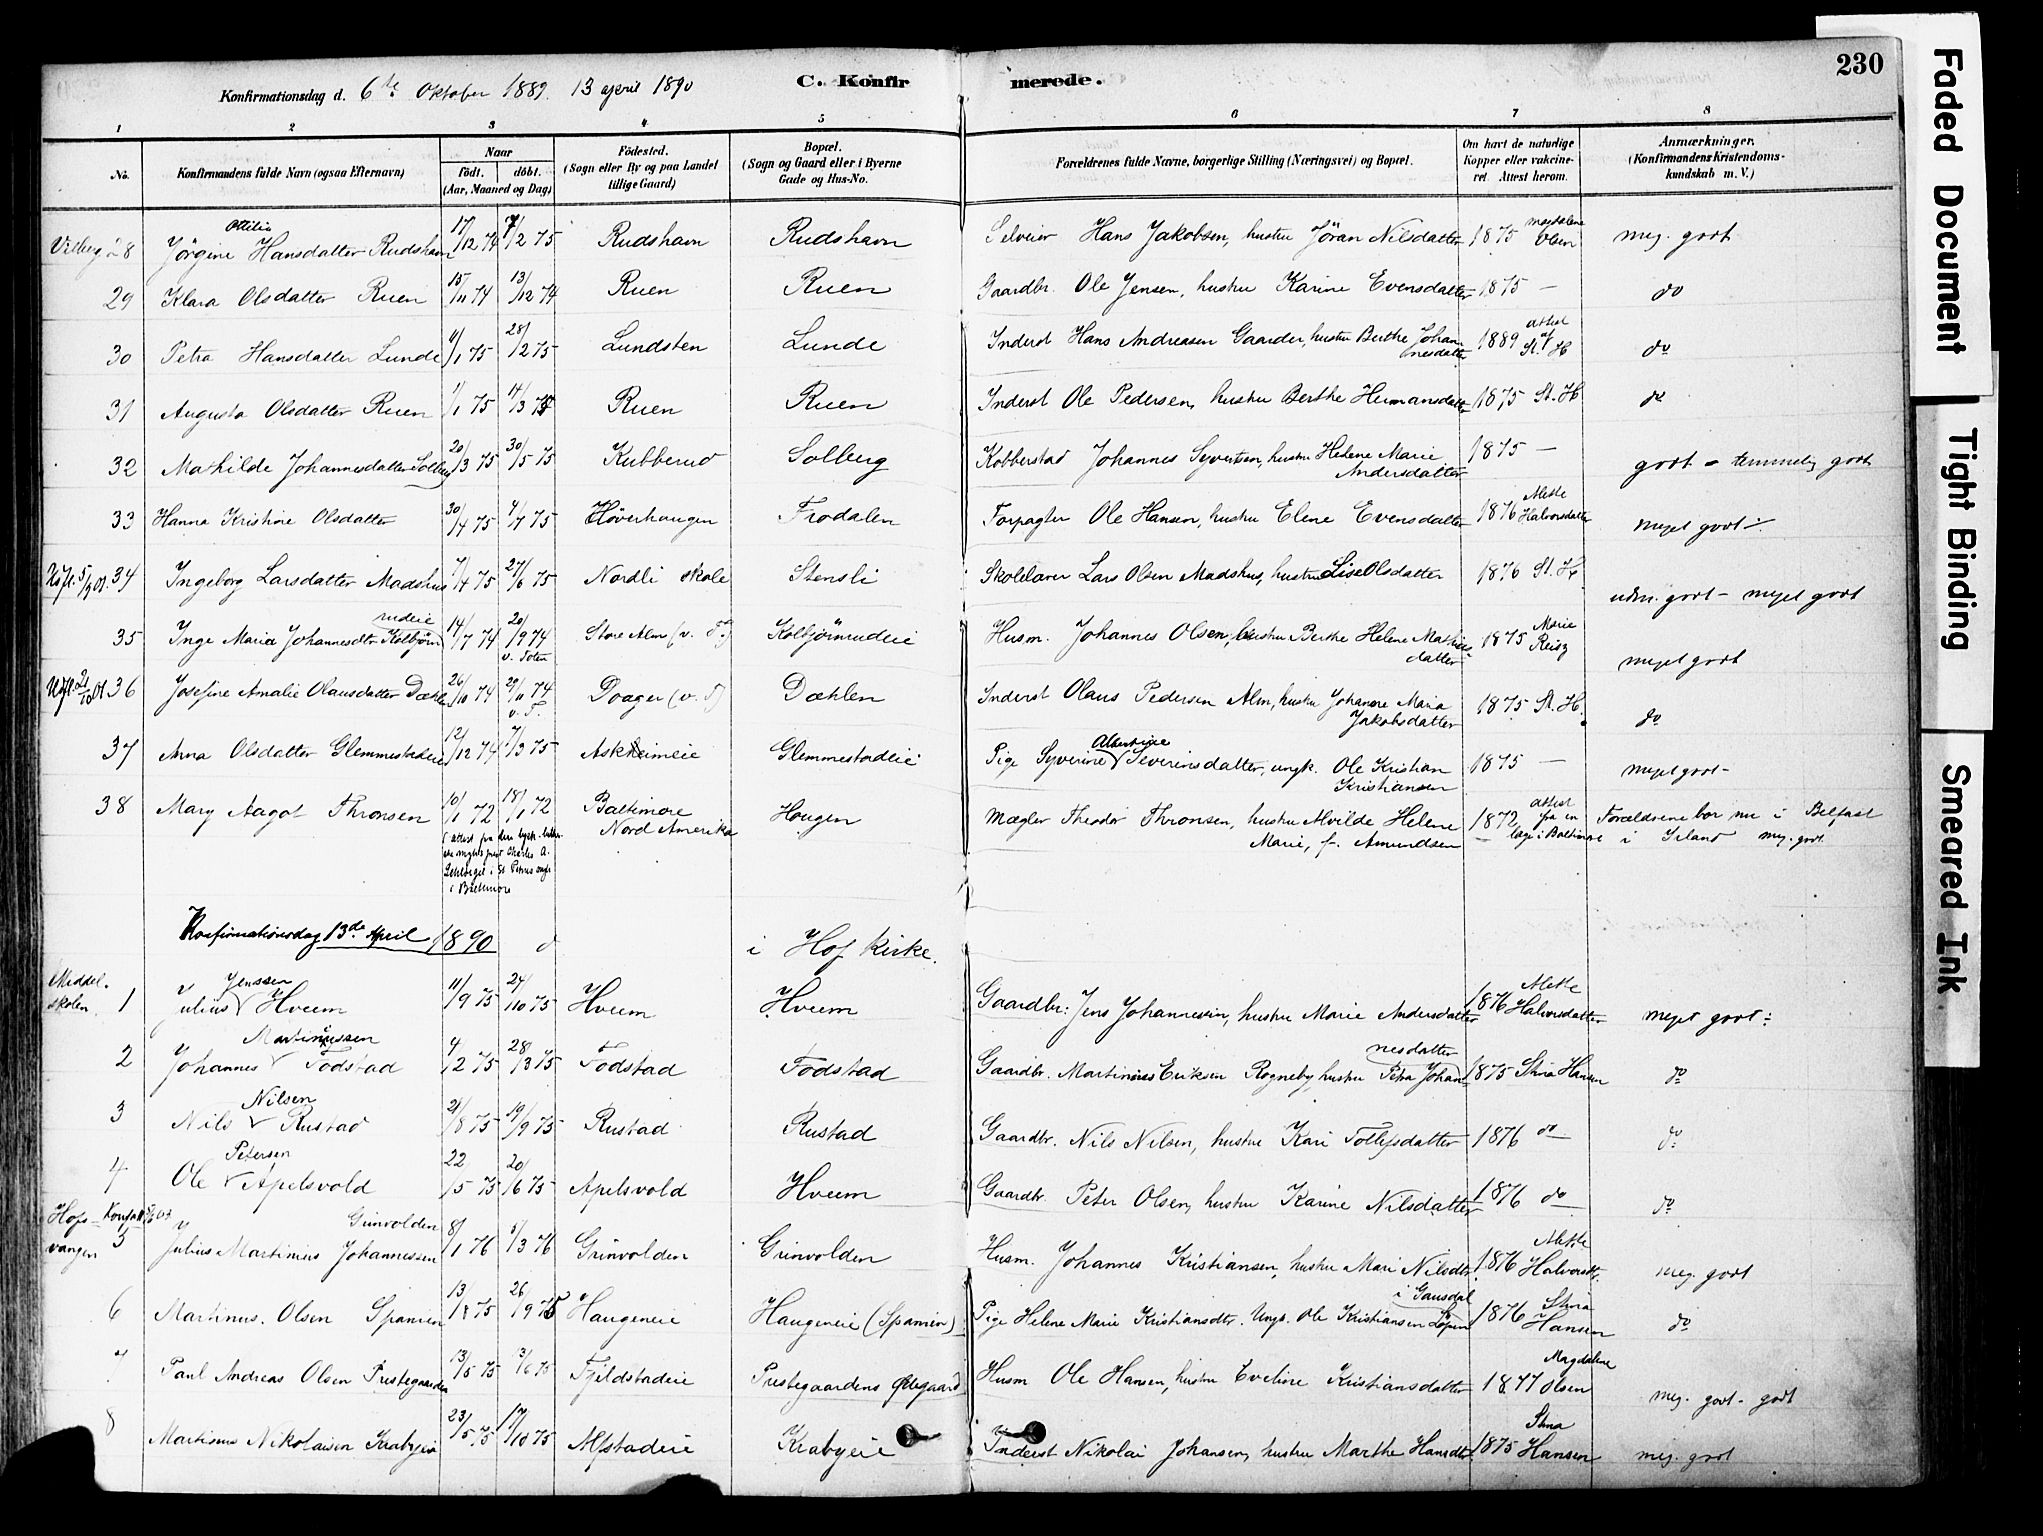 230
Konfirmationsdag d. 6te Oktober 1889. 13 april 1890
C. Konfirmerede.
1 2 3 4 5 6 7 8
No.
Konfirmandens fulde Navn (ogsaa Efternavn)
Naar
födt. döbt.
(Aar, Maaned og Dag)
Födested.
(Sogn eller By og paa Landet tillige Gaard)
Bopæl.
(Sogn og Gaard eller i Byerne Gade og Hus-No.
Forældrenes fulde Navne, borgerlige Stilling (Næringsvei) og Bopæl.
Om havt de naturlige Kopper eller vakcineret. Attest herom.
Anmærkninger.
(Konfirmandens Kristendomskundskab m. V.)
Vilberg 28 Jörgine Ottilie Hansdatter Rudshavn 17/12 74 7/2 75 Rudshavn Rudshavn Selveier Hans Jakobsen, hustru Jöran Nilsdatter 1875 Magdalene Olsen meg. godt
29 Klara Olsdatter Ruen 15/11 74 13/12 74 Ruen Ruen Gaardbr. Ole Jensen, hustru Karine Evensdatter 1875 — do
30 Petra Hansdatter Lunde 4/1 75 28/2 75 Lundsten Lunde Inderst Hans Andreasen Gaarder, hustru Berthe Johannesdatter 1889 attest af St. H do
31 Augusta Olsdatter Ruen 1/1 75 14/3 75 Ruen Ruen Inderst Ole Pedersen, hustru Berthe Hermansdatter 1875 St. H do
32 Mathilde Johannesdatter Solberg 20/3 75 30/5 75 Kubberud Solberg Kobberstad Johannes Syvertsen, hustru Helene Marie Andersdatter 1875 — godt - temmelig godt
33 Hanna Kristine Olsdatter 30/4 75 4/7 75 Höverhaugen Frodalen Forpagter Ole Hansen, hustru Elene Evensdatter 1876 Mette Halvorsdatter meget godt
34 Ingeborg Larsdatter Madshus 7/4 75 27/6 75 Nordli skole Stensli Skolelærer Lars Olsen Madshus, hustru Lise Olsdatter 1876 St. H. udm. godt - meget godt
35 Inge Maria Johannesdtr Kolbjörnrudeie 14/7 74 20/9 74 v. Toten Store Alm (v. T.) Kolbjörnrudeie Husm. Johannes Olsen, hustru Berthe Helene Mathiasdatter 1875 Marie Reisz meget godt
36 Josefine Amalie Olausdatter Dæhlen 26/10 74 29/11 74 v. T. Paager (v. T) Dæhlen Inderst Olaus Pedersen Alm, hustru Johanne Maria Jakobsdatter 1875 St. H. do
37 Anna Olsdatter Glemmestadeie 12/12 74 7/3 75 Askheimeie Glemmestadeie Pige Syverine Albertine Severinsdatter, ungk. Ole Kristian Kristiansen 1875 — meget godt -
38 Mary Aagot Thronsen 10/1 72 18/1 72 Baltimore Nord Amerika Haugen Mægler Theodor Thronsen, hustru Alvilde Helene Marie, f. Amundsen 1872, attest fra en læge i Baltimore Forældrene bor nu i Belfast i Irland meg. godt
Konfirmationsdag 13de April 1890 i Hof Kirke.
Middelskolen. 1 Julius Jenssen Hveem 11/9 75 24/10 75 Hveem Hveem Gaardbr: Jens Johannesen, hustru Marie Andersdatter 1876 Mette Halvorsdatter meget godt
2 Johannes Martinussen Fodstad 4/2 75 28/3 75 Fodstad Fodstad Gaardbr. Martinus Eriksen Rogneby, hustru Petra Johannesdatter 1875 Stina Hansen do
3 Nils Nilsen Rustad 21/8 75 19/9 75 Rustad Rustad Gaardbr. Nils Nilsen, hustru Kari Tollefsdatter 1876 do do
4 Ole Petersen Apelsvold 22/5 75 20/6 75 Apelsvold Hveem Gaardbr. Peter Olsen, hustru Karine Nilsdatter 1876 do do
Hofsvangen 5 Julius Martinus Johannessen Grinvolden 8/1 76 5/3 76 Grinvolden Grinvolden Husm. Johannes Kristiansen, hustru Mari Nilsdtr. 1876 Mette Halvorsdtr. meg. godt
6 Martinus. Olsen Spanien 13/8 75 26/9 75 Haugeneie Haugeneie (Spanien) Pige Helene Marie Kristiansdtr. Ungk. Ole Kristiansen Löpen i Gausdal 1876 Stina Hansen do
7 Paul Andreas Olsen Prestegaarden 13/5 75 13/6 75 Fjeldstadeie Prestegaardens Ödegaard Husm Ole Hansen, hustru Eveline Kristiansdatter 1877 Magdalene Olsen meg. godt - godt
8 Martinus Nikolaisen Krabyeie 23/5 75 17/10 75 Alfstadeie Krabyeie Inderst Nikolai Johansen, hustru Marthe Hansdtr 1875 Stina Hansen meg. godt
Faded Document
Tight Binding
Smeared Ink